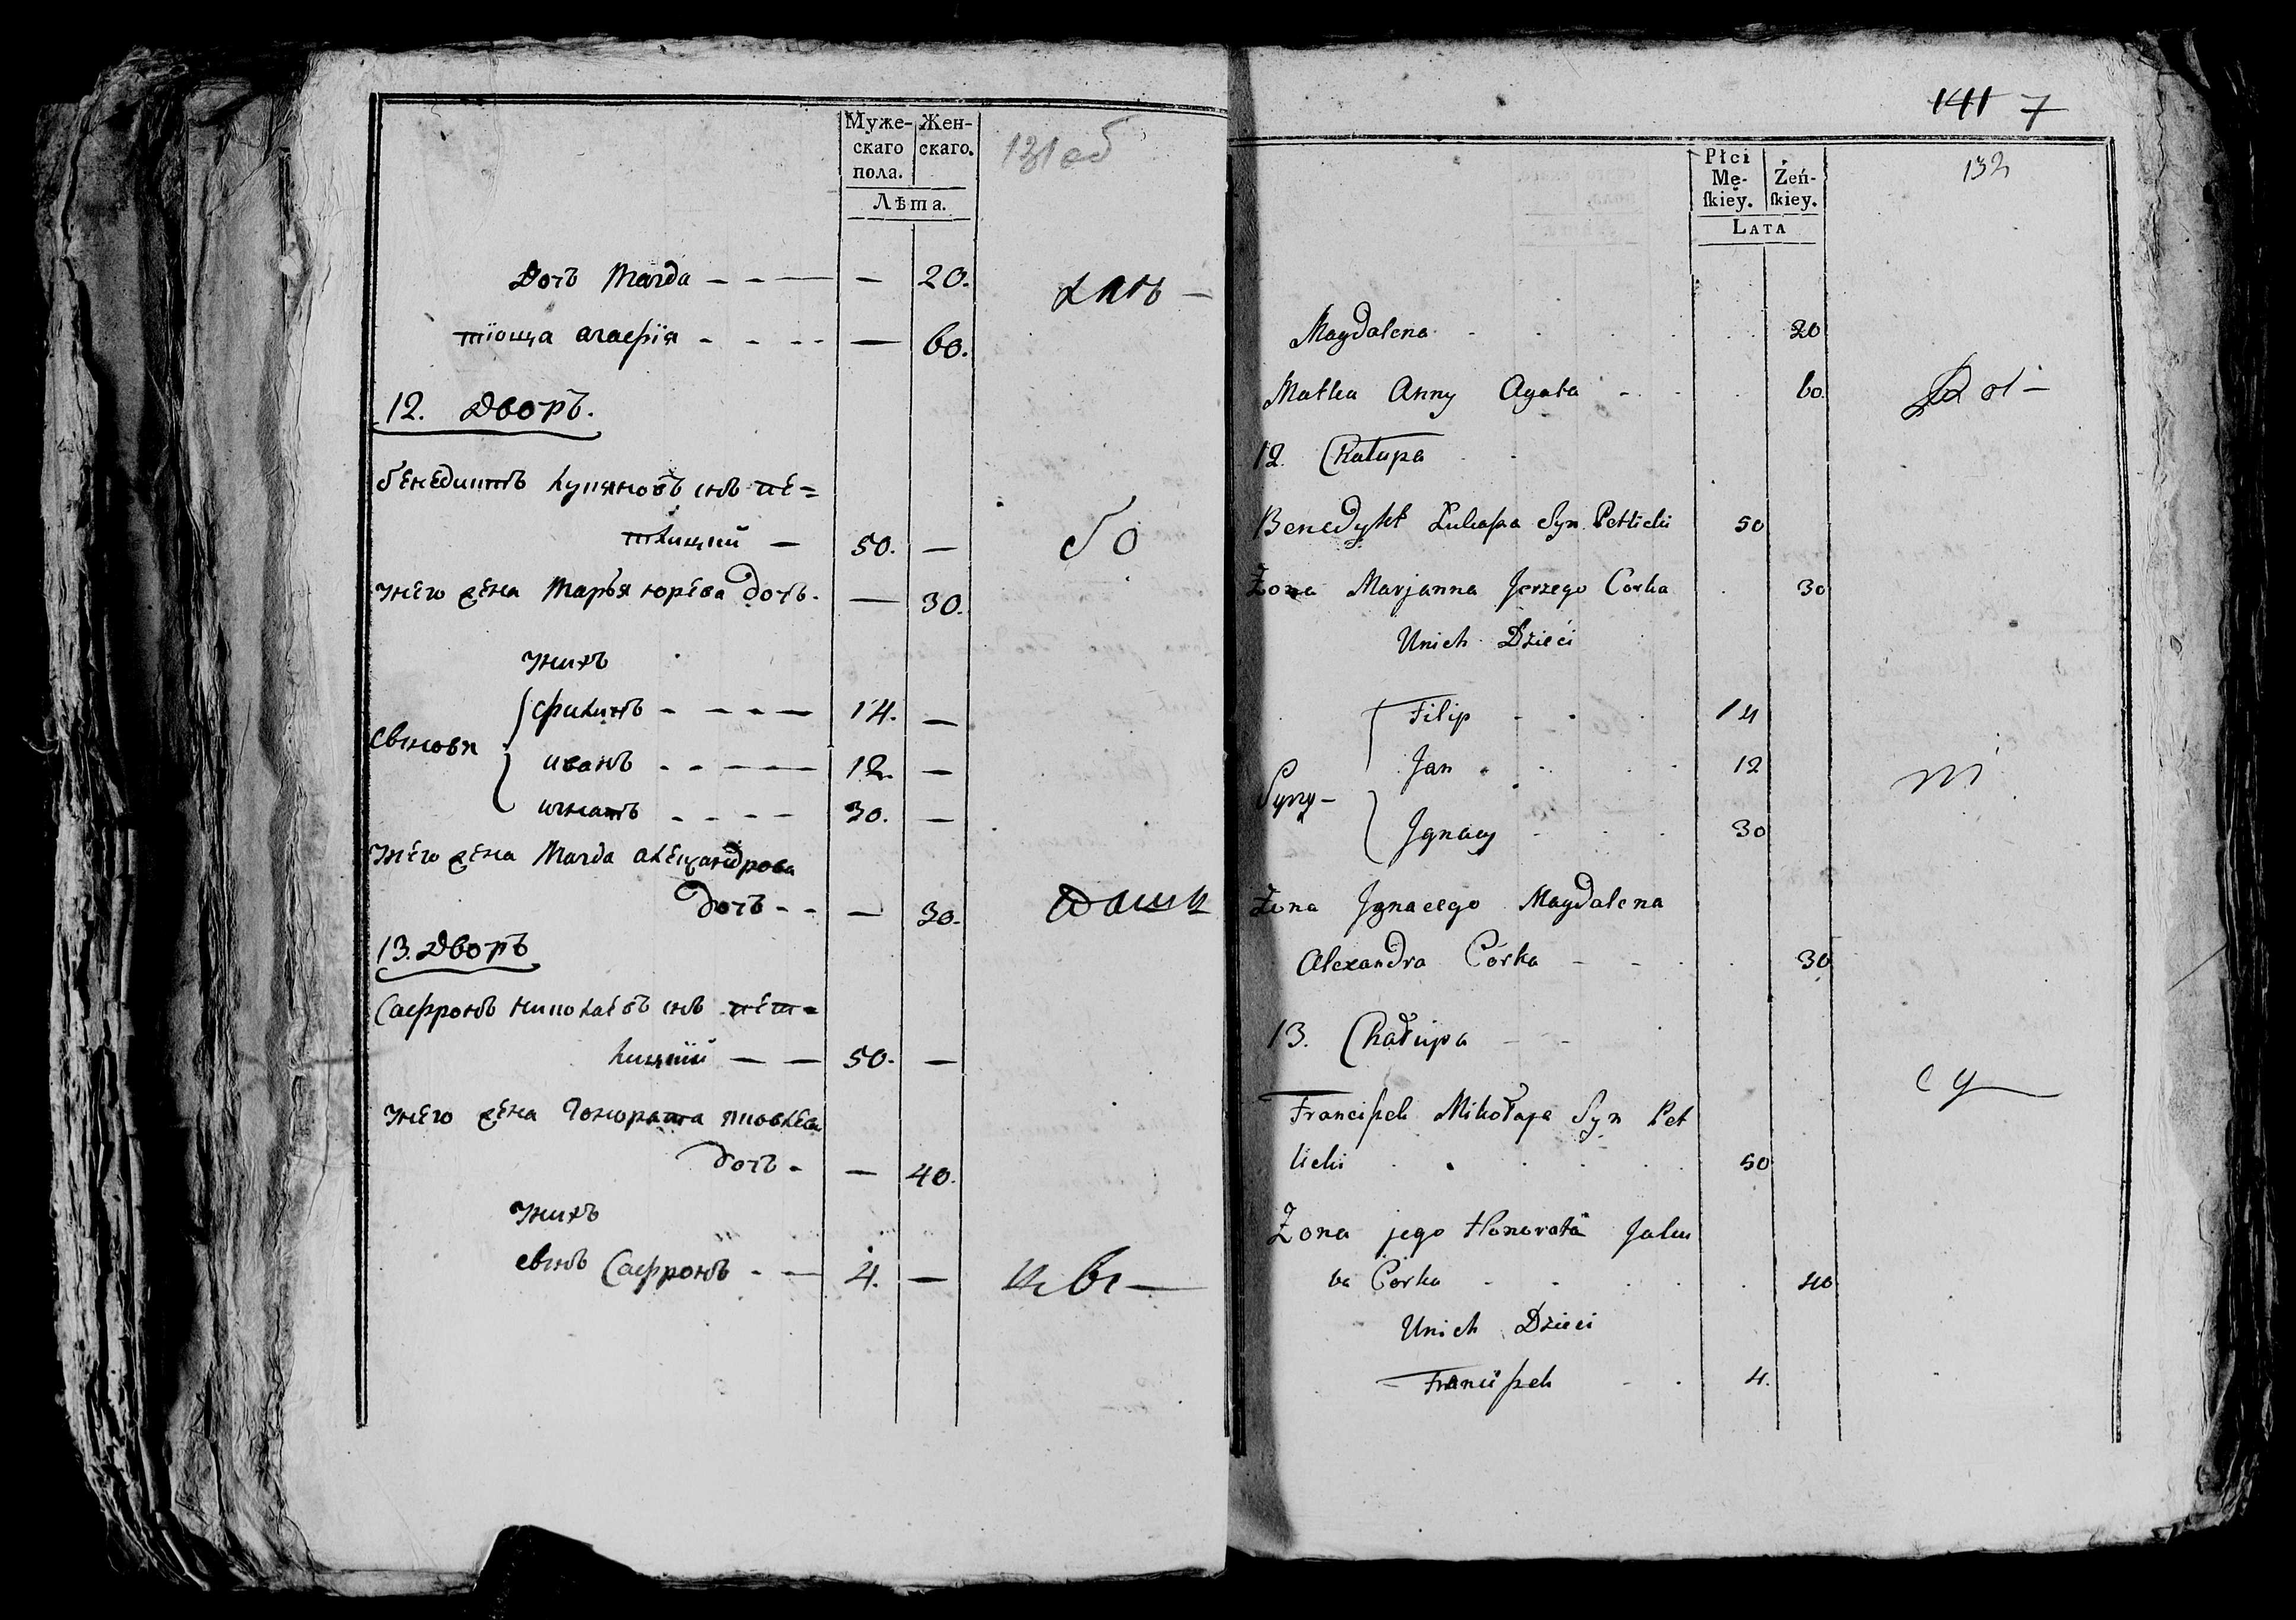 Муже-
скаго
пола.
Жен-
скаго.
Лѣта.
131 об
Дочь Магда - - — — 20.
тіоща агафія - - - - — 60.


12. Дворъ.
бенедиктъ лукяновъ снъ пе=
тлицкий — 50. —
унего жена Марья юрева дочь. — 30.
унихъ
сынови
филипъ - - - — 14. —
иванъ - - — — 12. —
игнатъ - - - - 30. —
унего жена Магда александрова
дочь - - — 30.
13. Дворъ
Сафронъ николаевъ снъ пет=
лицкій — — 50. —
унего жена Гонората яковлева
дочь - — 40.
унихъ
сынъ Сафронъ - — 4. —
бо
141 7
132
Płci
Mę-
skiey.
Żeń-
skiey.
LATA
Magdalena 20
Matka Anny Agata 60.
12. Chałupa
Benedykt Łukasza Syn Petlicki 50
Żona Marjanna Jerzego Corka 30
Unich Dzieći
Syny -
Filip 14
Jan 12
Jgnacy 30
Żona Jgnacego Magdalena
Alexandra Córka 30
13. Chałupa
Franciszek Mikołaja Syn Pet
licki 50
Żona jego Honorata Jaku
ba Corka 40
Unich Dzieci
Franciszek 4.